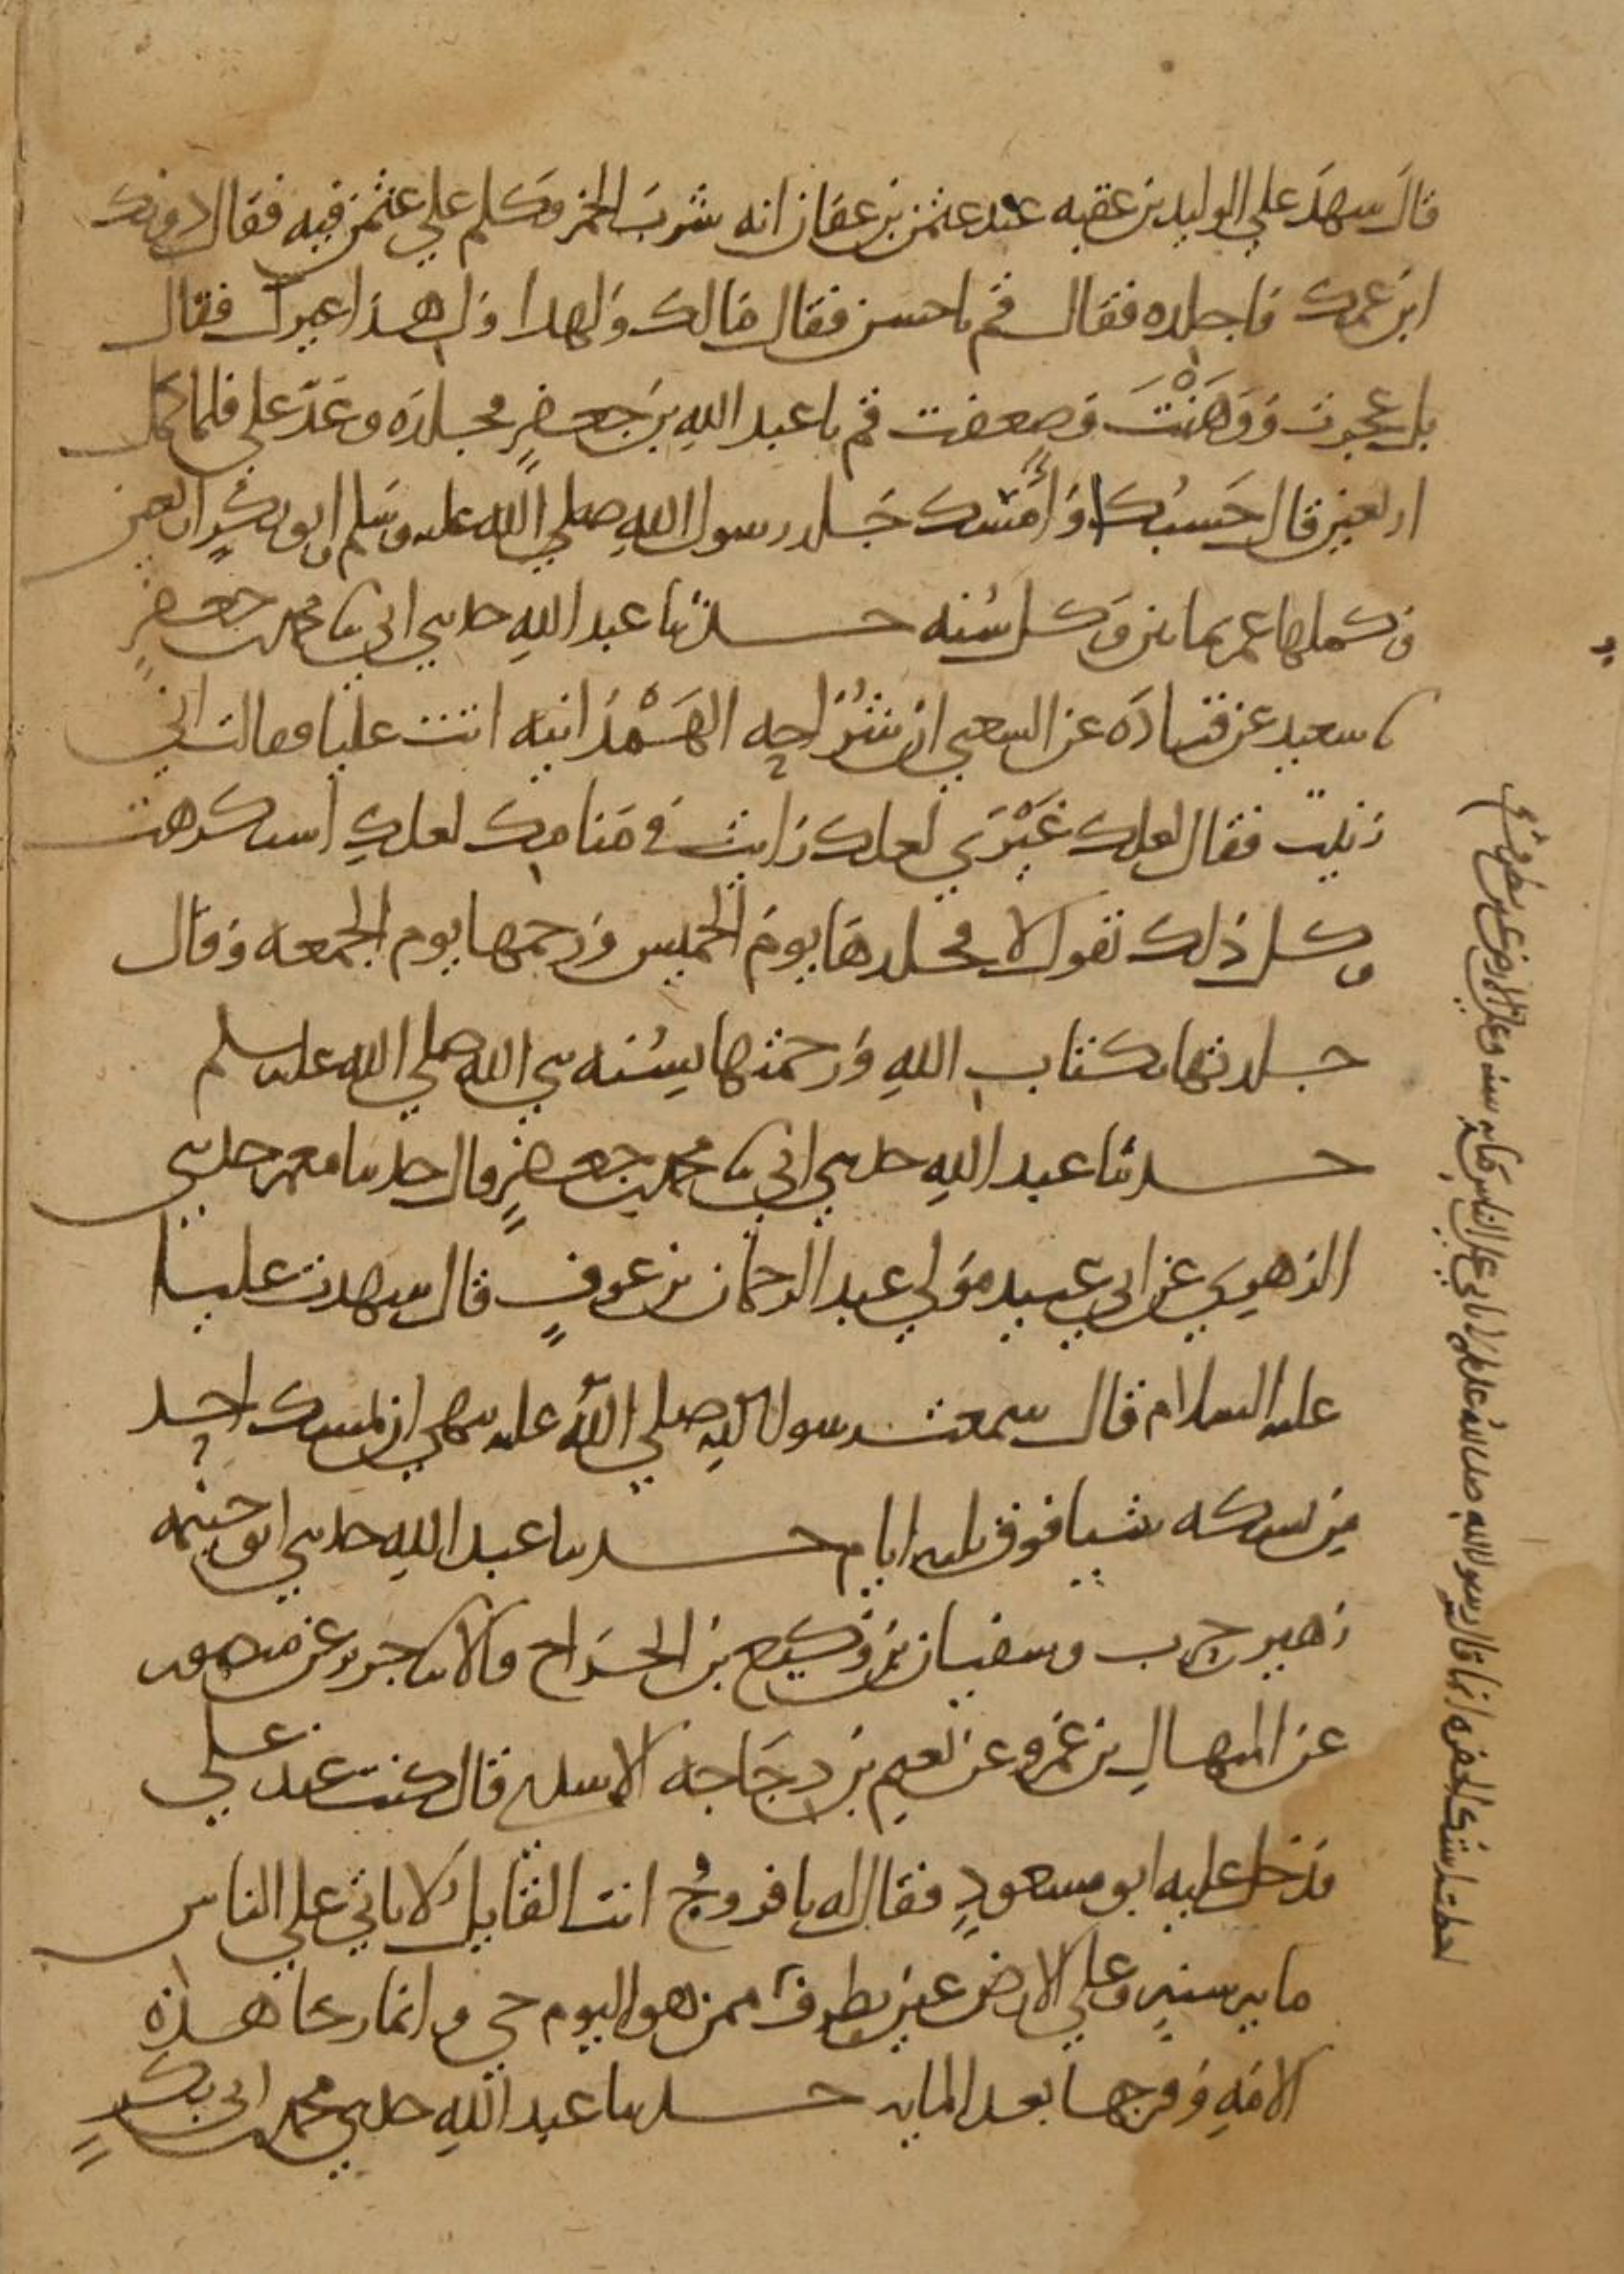 قال شهد علي الوليد بن عقبه عند عثمن بن عفان انه شرب الخمر وكلم علي عثمن فيه فقال دونك
ابن عمك فاجلده فقال قم يا حسن فقال مالك ولهذا ول هذا غيرك فقال
بل عجزت ووهنت وضعفت قم يا عبد الله بن جعفر فجلده وعد علي فلما كمل
اربعين قال حسبك او امسك جلد رسول الله صلي الله عليه وسلم وابو بكر اربعين
وكملها عمر ثمانين وكل سنه حدثنا عبد الله حدثني ابي ثنا محمد بن جعفر
ثنا سعيد عن قتاده عن الشعبي ان شراحه الهمدانيه اتت عليا فقالت اني
زنيت فقال لعلك غيري لعلك رايت في منامك لعلك استكرهت
وكل ذلك تقول لا فجلدها يوم الخميس ورجمها يوم الجمعه وقال
جلدتها بكتاب الله ورجمتها بسنه نبي الله صلي الله عليه وسلم
حدثنا عبد الله حدثني ابي ثنا محمد بن جعفر قال حدثنا معمر حدثني
الزهري عن ابي عبيد مولي عبد الرحمان بن عوف قال شهدت عليا
عليه السلام قال سمعت رسول الله صلي الله عليه نهي ان يمسك احد
من نسكه شيا فوق ثلثه ايام حدثنا عبد الله حدثني ابو خيثمه
زهير حرب وسفيان بن وكيع بن الجراح قالا ثنا جرير عن منصور
عن المنهال بن عمرو عن نعيم بن دجاجه الاسدي قال كنت عند علي
فدخل عليه ابو مسعود فقال له يا فروخ انت القايل لا ياتي علي الناس
مايه سنه وعلي الارض عين تطرف ممن هو اليوم حي وانما رخا هذه
الامه وفرجها بعد المايه حدثنا عبد الله حدثني محمد بن ابي بكر
اخطت استك الحفره انما قال رسول الله صلى الله عليه لا ياتي علي الناس مايه سنه وعلي الارض عين تطرف ممن